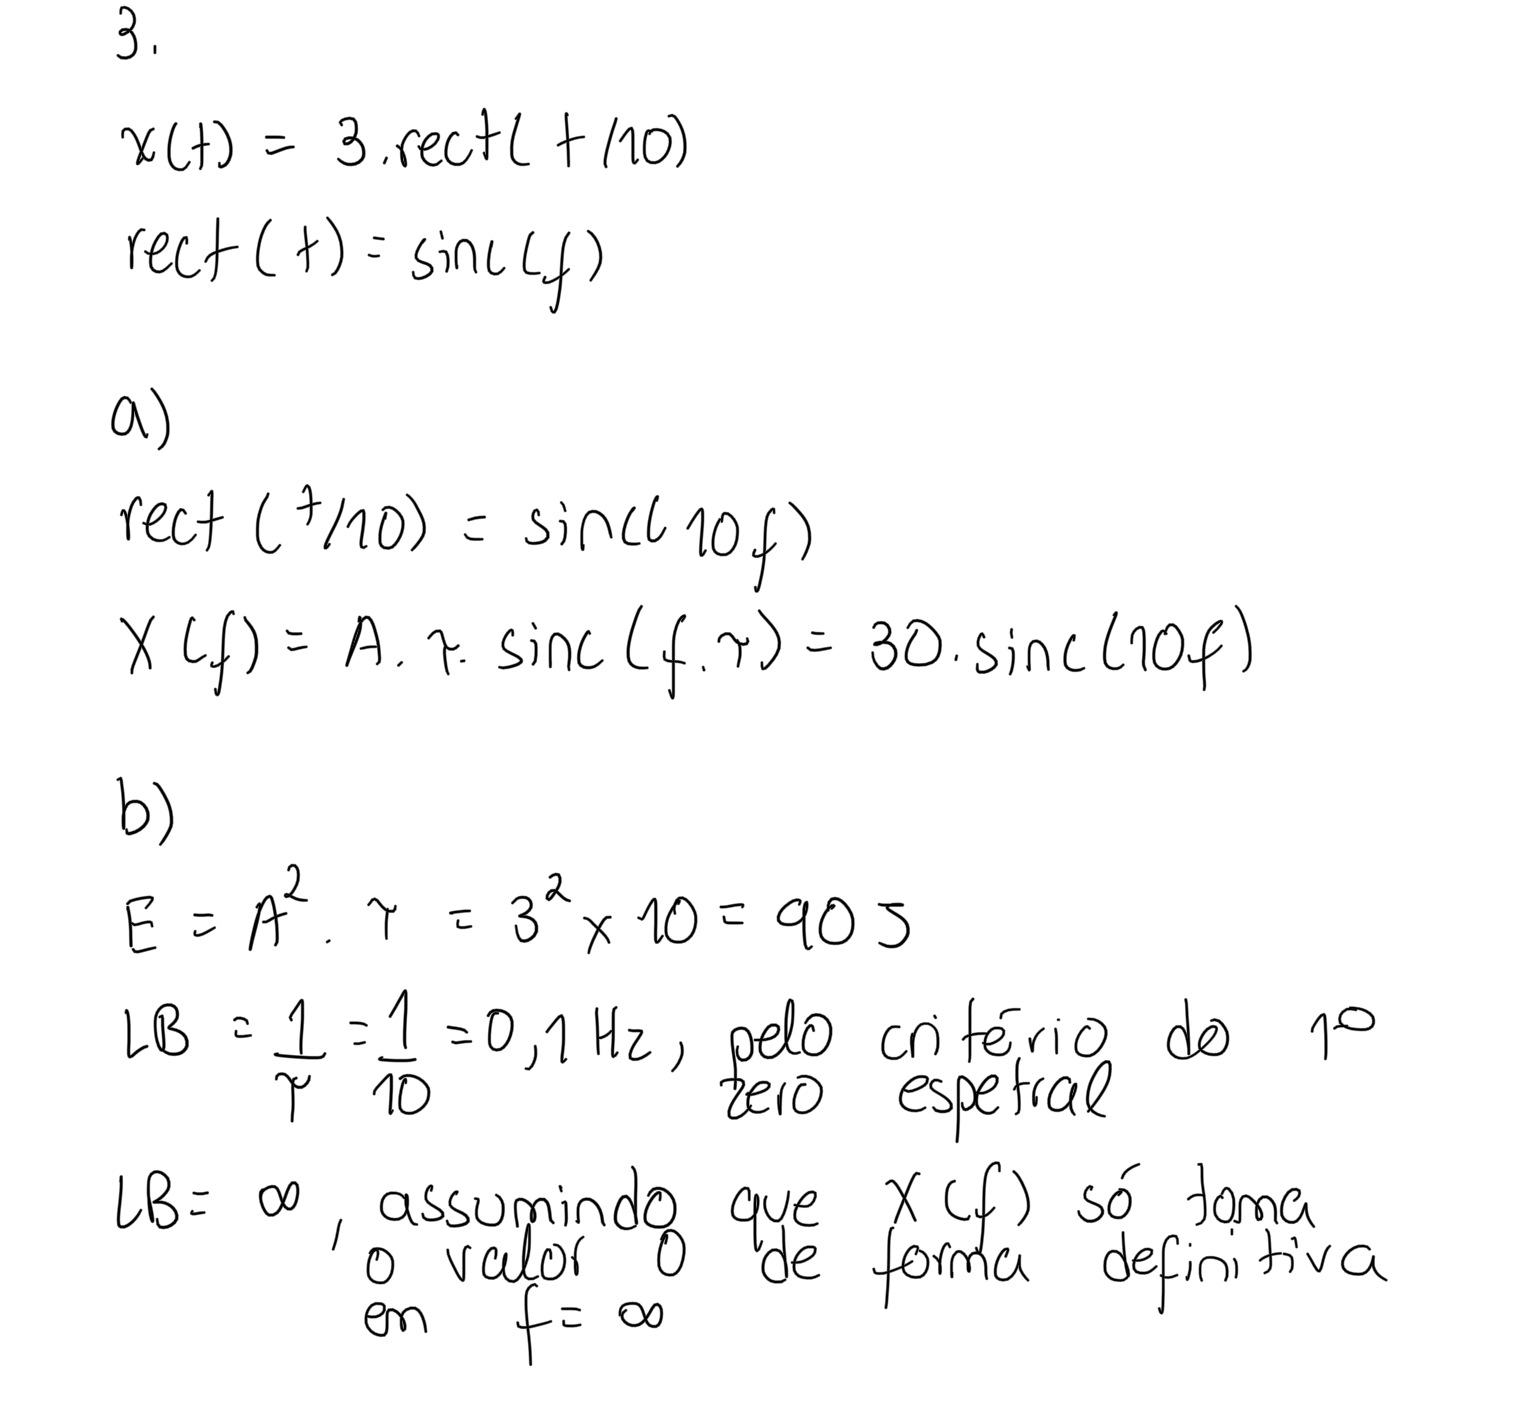 3.
x(t) = 3.rect(t/10)
rect(t) = sinc(f)
a)
rect(t/10) = sinc(10f)
X(f) = A.τ.sinc(f.τ) = 30.sinc(10f)
b)
E = A².τ = 3² x 10 = 90 J
LB = 1/τ = 1/10 = 0,1 Hz, pelo critério do 1º
zero espetral
LB = ∞, assumindo que X(f) só toma
o valor 0 de forma definitiva
em f = ∞